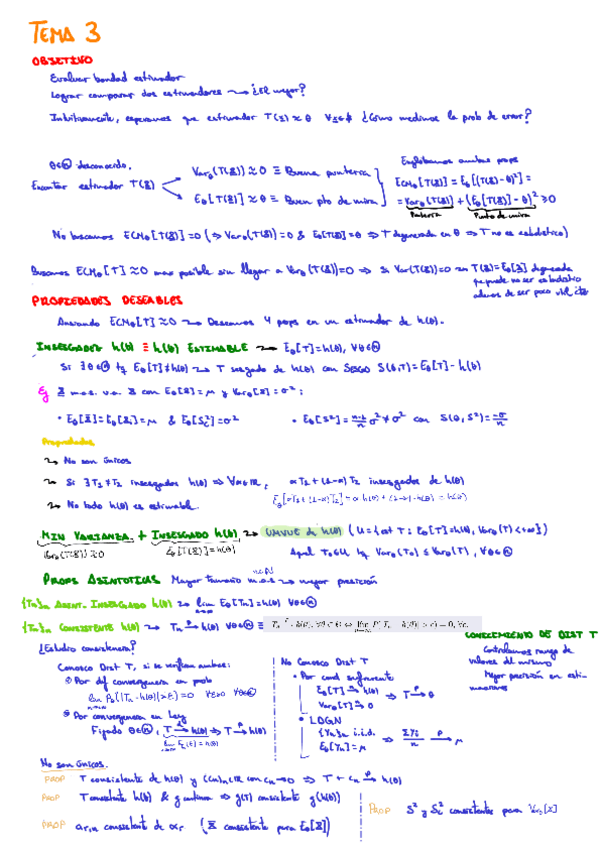 TEMA 3
OBJETIVO
Evaluar bondad estimador
Lograr comparar dos estimadores ⟿ ¿El mejor?
Intuitivamente, esperamos que estimador T(x) ≈ θ ∀x∈ ¿Cómo medimos la prob de error?
θ∈Θ desconocido.
Encontrar estimador T(X)
Varθ(T(X)) ≈ 0 ≡ Buena puntería
Eθ[T(X)] ≈ θ ≡ Buen pto de mira
Englobamos ambas props
ECMθ[T(X)] = Eθ[(T(X)-θ)²] =
= Varθ(T(X)) + (Eθ[T(X)]-θ)² ≥ 0
Puntería Punto de mira
No buscamos ECMθ[T(X)] = 0 (⇒ Varθ(T(X)) = 0 & Eθ[T(X)] = θ ⇒ T degenerada en θ ⇒ T no es estadístico)
Buscamos ECMθ[T] ≈ 0 mas posible sin llegar a Varθ(T(X)) = 0 ⇒ Si Var(T(X)) = 0 ⟿ T(X) = Eθ[X] degenerada
que puede no ser estadístico
además de ser poco
PROPIEDADES DESEABLES
Ansiando ECMθ[T] ≈ 0 ⟿ Deseamos 4 props en un estimador de h(θ).
INSESGADEZ h(θ) ≡ h(θ) ESTIMABLE ⟿ Eθ[T] = h(θ), ∀θ∈Θ
Si ∃θ∈Θ tq Eθ[T] ≠ h(θ) ⟿ T sesgado de h(θ) con SESGO S(θ,T) = Eθ[T] - h(θ)
Ej X m.a.s. v.a. X con Eθ[X] = μ y Varθ[X] = σ² :
• Eθ[X̄] = Eθ[Xi] = μ & Eθ[Sc²] = σ² • Eθ[S²] = (n-1)/n σ² ≠ σ² con S(θ, S²) = -σ²/n
Propiedades
⟿ No son únicos
⟿ Si ∃T1 ≠ T2 insesgados h(θ) ⇒ ∀α∈ℝ, αT1 + (1-α)T2 insesgados de h(θ)
⟿ No todo h(θ) es estimable. Eθ[αT1 + (1-α)T2] = α h(θ) + (1-α)·h(θ) = h(θ)
MIN VARIANZA + INSESGADO h(θ) ⟿ UMVUE de h(θ) (U = {est T : Eθ[T] = h(θ), Varθ(T) < +∞})
Varθ(T(X)) ≈ 0 Eθ[T(X)] = h(θ) Aquel T0∈U tq Varθ(T0) ≤ Varθ(T), ∀θ∈Θ
PROPS ASINTOTICAS Mayor tamaño m.a.s ⟿ mejor precisión
{Tn}n ASINT. INSESGADO h(θ) ⟿ lim Eθ[Tn] = h(θ) ∀θ∈Θ
{Tn}n CONSISTENTE h(θ) ⟿ Tn →P h(θ) ∀θ∈Θ ≡
CONOCIMIENTO DE DIST T
Controlamos rango de
valores del mismo
Mejor precisión en esti-
maciones
¿Estudio consistencia?
Conozco Dist T, si se verifican ambas:
① Por def convergencia en prob
lim Pθ[|Tn - h(θ)| > ε] = 0 ∀ε>0 ∀θ∈Θ
② Por convergencia en Ley
Fijado θ∈Θ, T →L h(θ) ⇒ T →P h(θ)
No Conozco Dist T
• Por cond suficiente
Eθ[T] → h(θ)
Varθ[T] → 0
⇒ T →P θ
• LDGN
{Yn}n i.i.d.
Eθ[Yn] = μ
⇒ ΣYi/n →P μ
No son únicos.
PROP T consistente de h(θ) y {Cn}n⊂ℝ con cn → 0 ⇒ T + cn →P h(θ)
PROP T consistente h(θ) & g continua ⇒ g(T) consistente g(h(θ))
PROP ar,n consistente de αr (X̄ consistente para Eθ[X])
PROP S² y Sc² consistentes para Varθ[X]